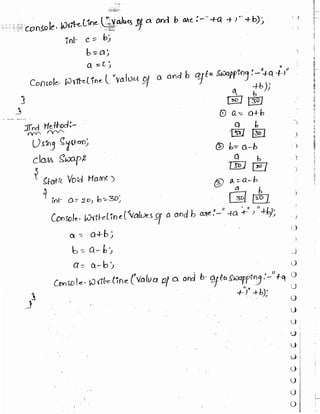 Console.WriteLine("Values of a and b are:-"+a +","+b);
int c = b;
b = a;
a = c;
Console.WriteLine("values of a and b after Swapping:-"+a +","
+b);
}
}
a b
① a = a+b
IInd Method:-
a b
Using System;
② b = a-b
class Swap2
a b
{
Static Void Main( )
③ a = a-b
{
a b
int a = 20, b = 30;
Console.WriteLine("Values of a and b are:-" +a +","+b);
a = a+b;
b = a-b;
a = a-b;
Console.WriteLine("Values of a and b after Swapping:-"+a
+","+b);
}
}